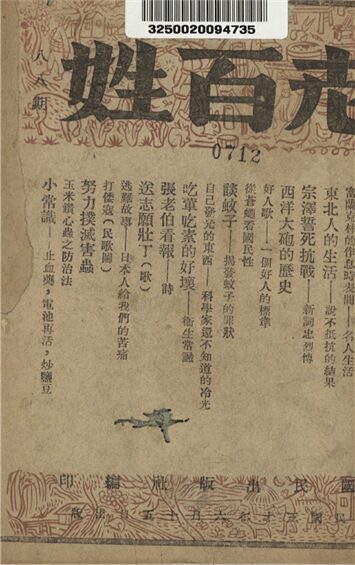 3250020094735
老百姓
八八期
0712
富蘭克林的作息時表間——名人生活
東北人的生活——說不抵抗的結果
宗澤誓死抗戰——新詞忠烈傳
西洋大砲的歷史
好人歌——一個好人的標準
從蒼蠅看國民性
談蚊子——揭發蚊子的罪狀
自己發光的東西——科學家還不知道的冷光
吃葷吃素的好壞——衛生常識
張老伯看報——詩
送志願壯丁（歌）
逃難故事——日本人給我們的苦痛
打倭寇（民歌圖）
努力撲滅害蟲
玉米鑽心蟲之防治法
小常識——止血藥，電池再活，炒鹽豆
國民出版社編印
民國三十年六月十五日出版